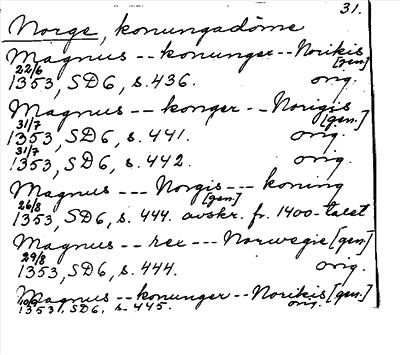 31.
Norge, konungadöme
Magnus -- konunger -- Norikis [gen]
22/6 1353, SD6, s. 436. orig.
Magnus -- konger -- Norigis [gen.]
31/7 1353, SD6, s. 441. orig.
31/7 1353, SD6, s. 442. orig.
Magnus --- Norgis [gen.] --- koning
26/8 1353, SD6, s. 444. avskr. fr. 1400-talet
Magnus -- rex --- Norwegie [gen]
29/8 1353, SD6, s. 444. orig.
Magnus -- konunger -- Norikis [gen.]
1353, SD6, s. 445. orig.